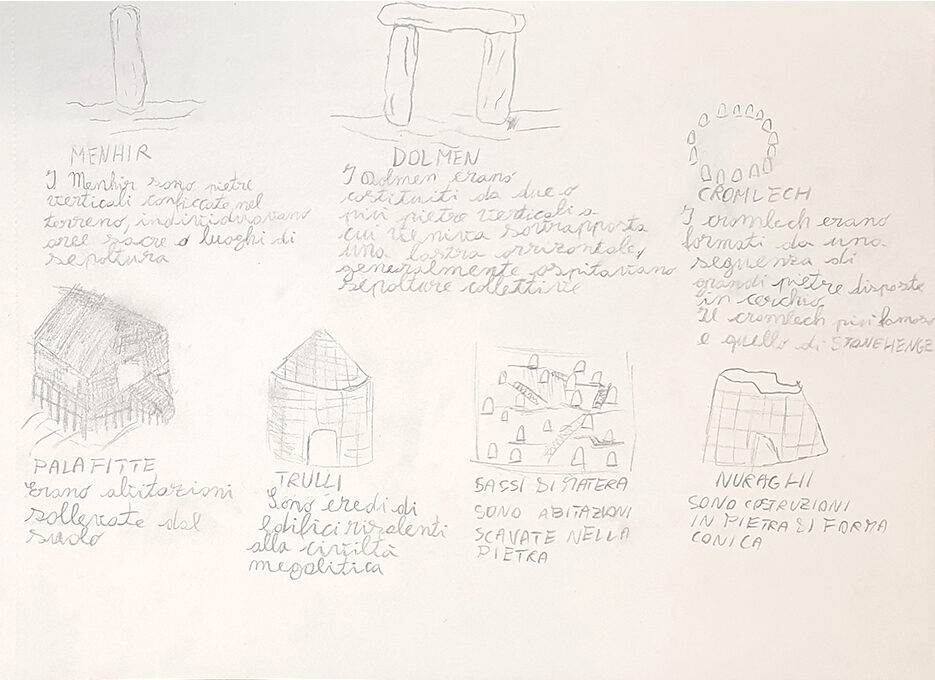 MENHIR
I Menhir sono pietre
verticali conficcate nel
terreno, individuavano
aree sacre o luoghi di
sepoltura
DOLMEN
I Dolmen erano
costituiti da due o
più pietre verticali a
cui veniva sovrapposta
una lastra orrizontale,
generalmente ospitavano
sepolture collettive
CROMLECH
I cromlech erano
formati da una
seguenza di
grandi pietre disposte
in cerchio
Il cromlech più famoso
e quello di STONEHENGE
PALAFITTE
Erano abitazioni
sollevate dal
suolo
TRULLI
Sono eredi di
edifici risalenti
alla civiltà
megolitica
SASSI DI MATERA
SONO ABITAZIONI
SCAVATE NELLA
PIETRA
NURAGHI
SONO COSTRUZIONI
IN PIETRA DI FORMA
CONICA